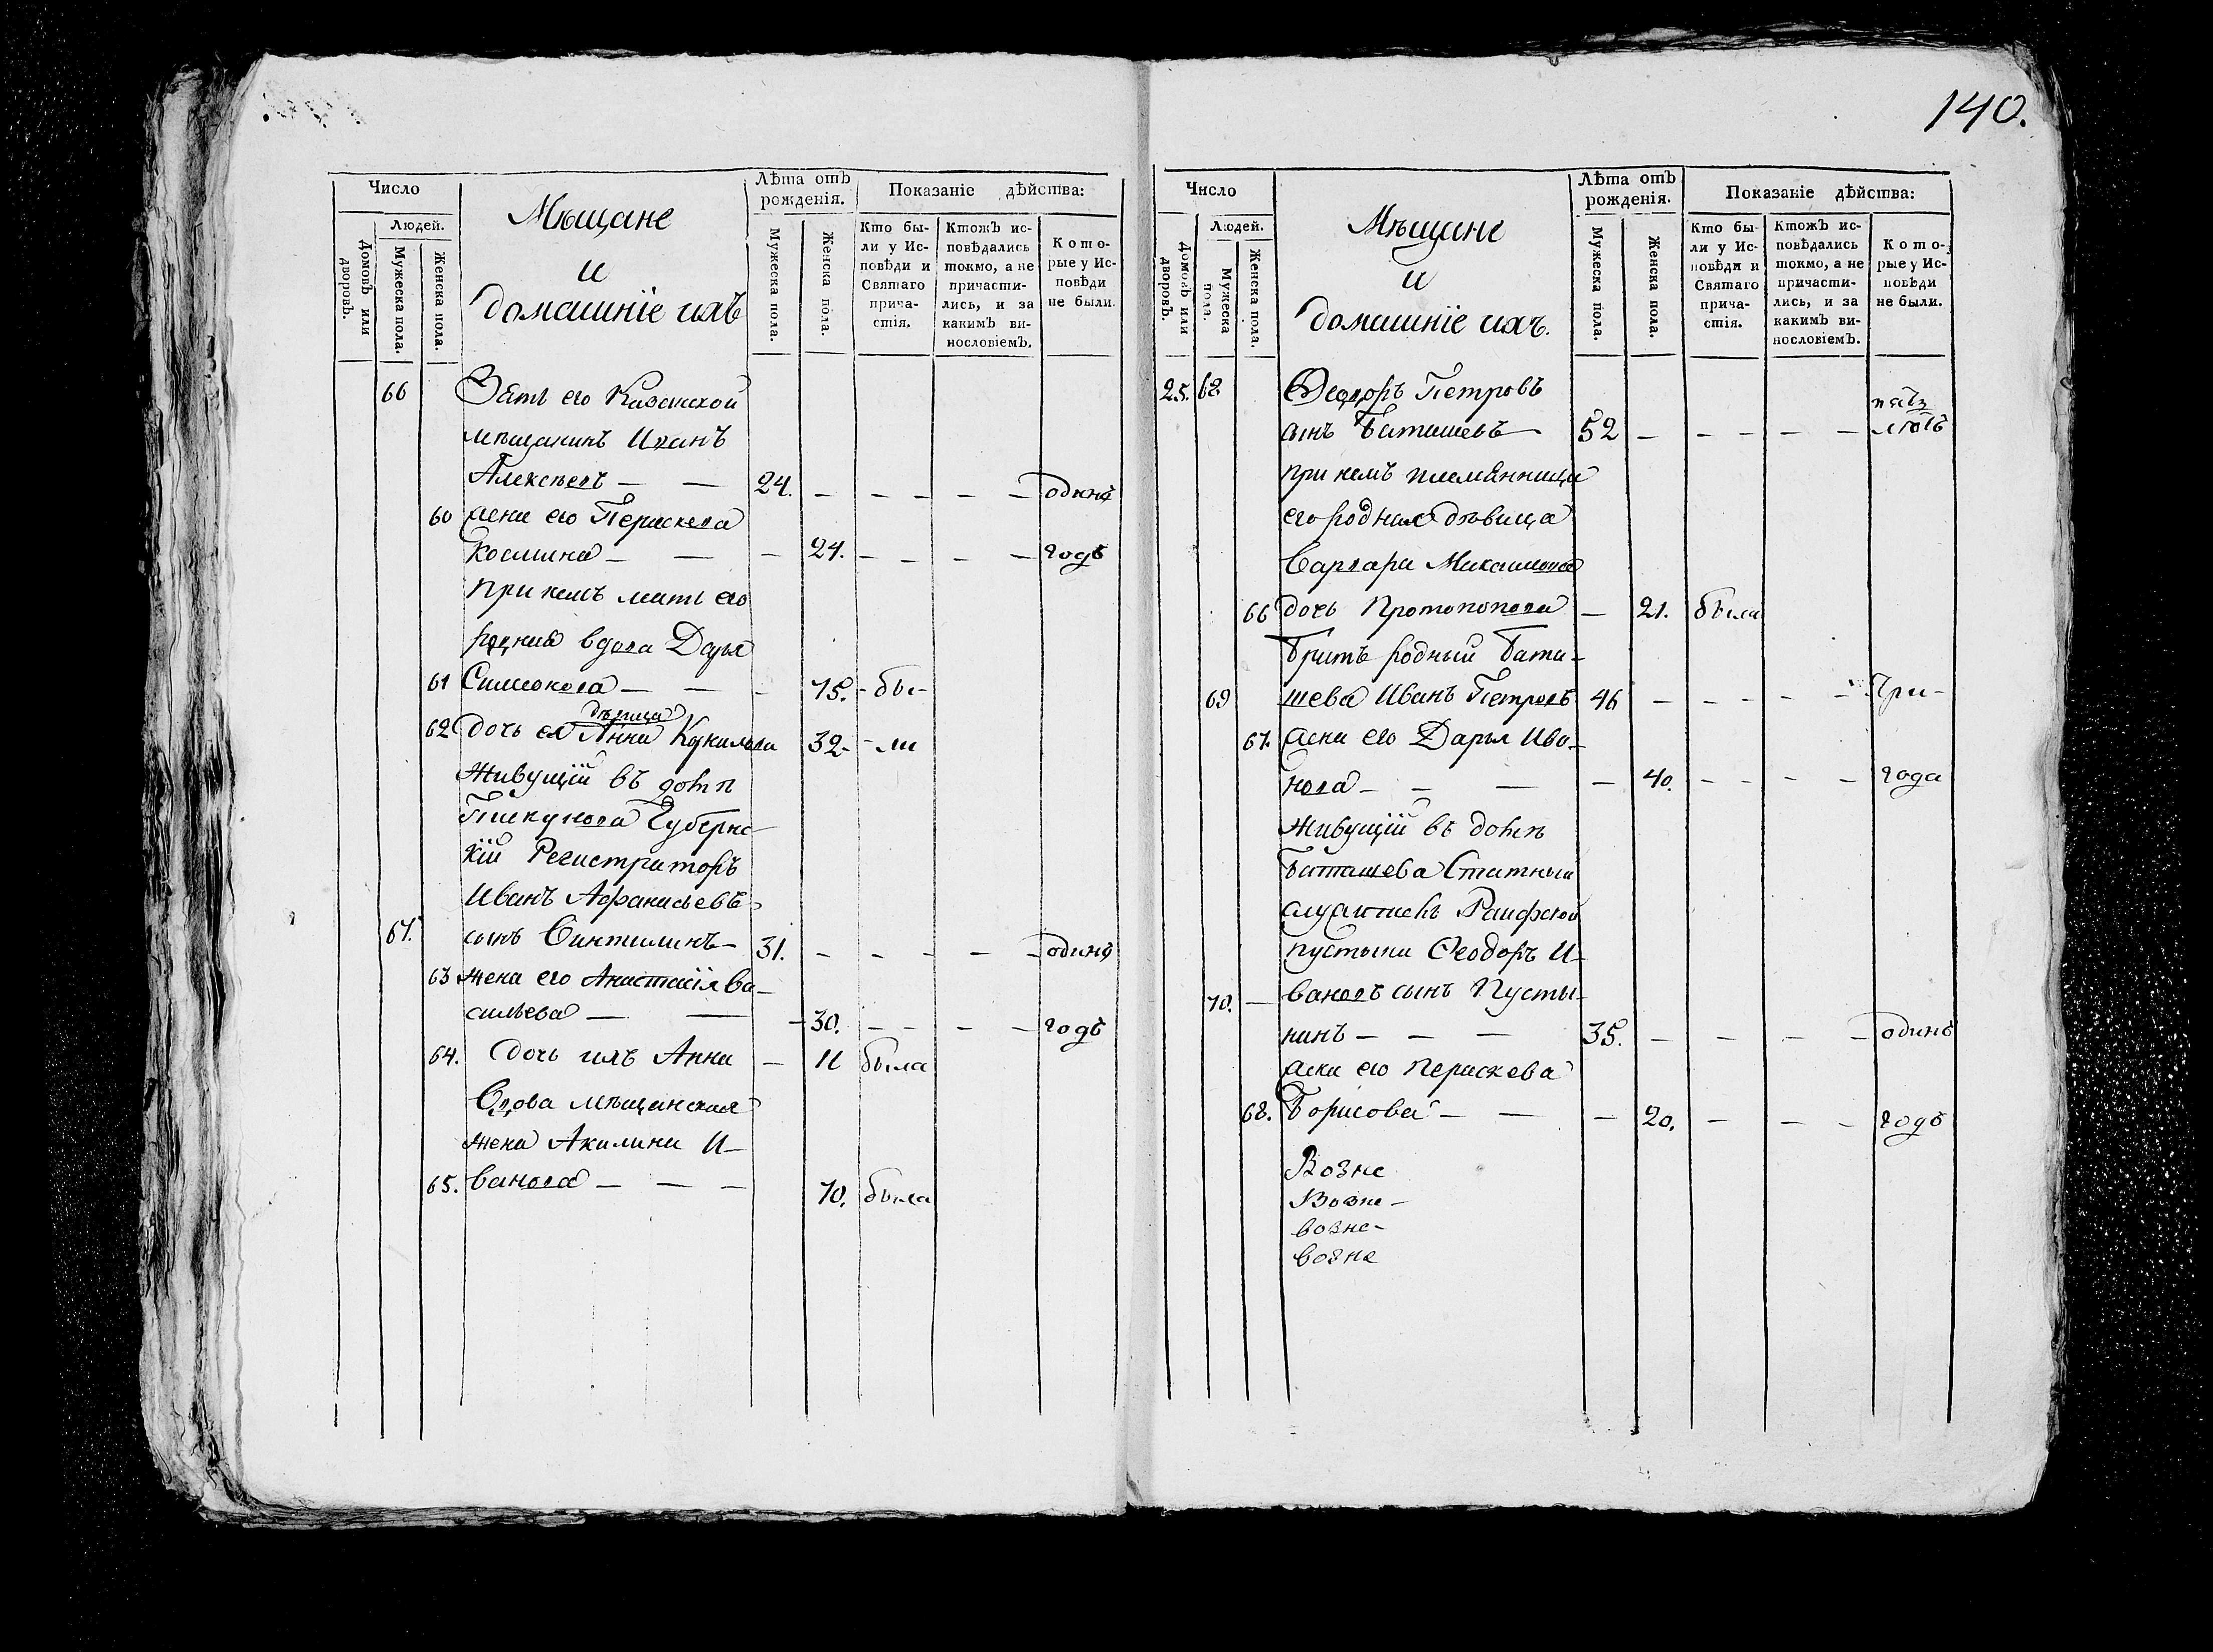 140.
Число
Людей.
Домовъ или дворовъ.
Мужеска пола.
Женска пола.
Мѣщане
и
домашніе ихъ
Лѣта отъ рожденія.
Мужеска пола.
Женска пола.
Показаніе дѣйства:
Кто бы-
ли у Ис-
повѣди и
Святаго
прича-
стія.
Ктожъ ис-
повѣдались
токмо, а не
причасти-
лись, и за
какимъ ви-
нословіемъ.
Кото-
рые у Ис-
повѣди
не были.
66 Зять его Казанской
мѣщанинъ Иванъ
Алексѣевъ — — 24. — — — — — одинъ
60 жена его Параскева
Космина — — — 24. — — — — годъ
При немъ мать его
родная вдова Дарья
61 Симеонова — — — 75. - бы-
дѣвица
62 дочь ея Анна 32 - - ли
Живущій въ домѣ
Пискунова Губернс-
кій Регистраторъ
Иванъ Афанасьевъ
67. сынъ 31. — — — — — одинъ
63 жена его Анастасія Ва-
сильева — — — 30. — — — — годъ
64. дочь ихъ Анна — 11 была
Вдова мѣщанская
жена Акилина И-
65. ванова — — — 70. была
Число
Людей.
Домовъ или дворовъ.
Мужеска пола.
Женска пола.
Мѣщане
и
домашніе ихъ.
Лѣта отъ рожденія.
Мужеска пола.
Женска пола.
Показаніе дѣйства:
Кто бы-
ли у Ис-
повѣди и
Святаго
прича-
стія.
Ктожъ ис-
повѣдались
токмо, а не
причасти-
лись, и за
какимъ ви-
нословіемъ.
Кото-
рые у Ис-
повѣди
не были.
25. 68 Ѳеодоръ Петровъ
пять
сынъ Баташевъ — 52 — — — — — лѣтъ
при немъ племянница
его родная дѣвица
Варвара Михаилова
66 дочь Протопопова — 21. была
Братъ родный Бата-
69 шева Иванъ Петровъ 46 — — — — — При-
67. жена его Дарья Ива-
нова — — — — 40. — — — — года
Живущій въ домѣ
Баташева Статный
служитель Раифской
пустыни Ѳеодоръ И-
70. — вановъ сынъ Пусты-
нинъ — — — 35. — — — — одинъ
жена его Параскева
68. Борисова — — — 20. — — — годъ
Возне
Возне-
возне-
возне